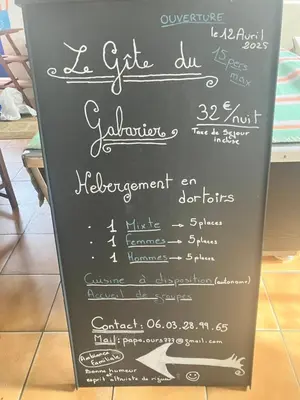 OUVERTURE
le 12 Avril
2025
15 pers
max
Le Gîte du
Gabarier
32 €/nuit
Taxe de Sejour
incluse
Hebergement en
dortoirs
• 1 Mixte → 5 places
• 1 Femmes → 5 places
• 1 Hommes → 5 places
Cuisine à disposition (autonome)
Accueil de groupes
Contact: 06.03.28.99.65
Mail: papa.ours777@gmail.com
Ambiance
familiale
Bonne humeur
et
esprit altruiste de rigueur